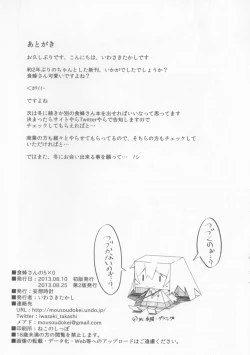 あとがき
お久しぶりです、こんにちは、いわさきたかしです
約2年ぶりのちゃんとした新刊、いかがでしたでしょうか?
食蜂さん可愛いですよね?
ですよね
次は冬に続きか別の食蜂さん本を出せればいいなって思ってます
決まったらサイトやらTwitterやらで告知しますので
チェックしてもらえればと…
商業の方も細々とやらせてもらってるので、そちらの方もチェックして
いただければと…
ではまた、冬にお会い出来る事を願って… ノシ
つづくのかー?
つづかないのかー?
■食蜂さんの5×0
■発行日:2013.08.10 初版発行
2013.08.25 第2版発行
■発行:妄想時計
■発行者:いわさきたかし
■連絡先
URL:http://mousoudokei.undo.jp/
Twitter:iwasaki_takashi
メアド:mousoudokei@gmail.com
■印刷所:ねこのしっぽ
■18歳未満の閲覧・購入禁止。
■画像の転載・データ化・Web等へのアップロードはご遠慮ください。